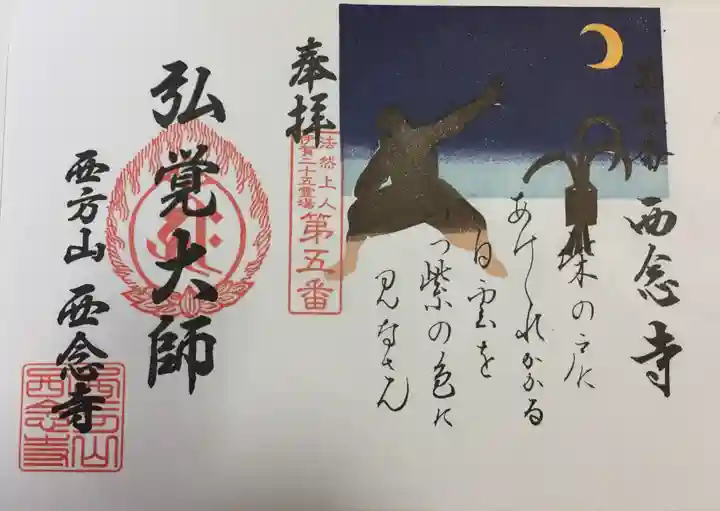 西念寺
柴の戸に
あけくれかかる
白雲を
いつ紫の色に
見なさん
奉拝
法然上人
伊賀二十五霊場
第五番
弘覚大師
西方山 西念寺
西念寺